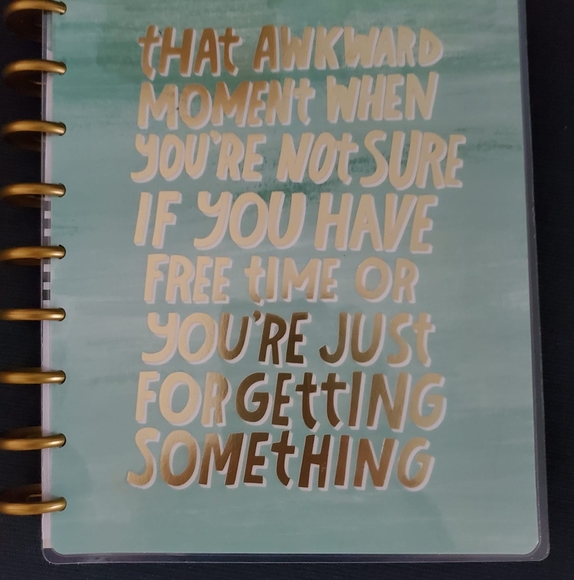 tHAt AWKWARD
MOMENt WHEN
YOU'RE NOt SURE
IF YOU HAVE
FREE tIME OR
YOU'RE JUSt
FORGEttING
SOMEtHING